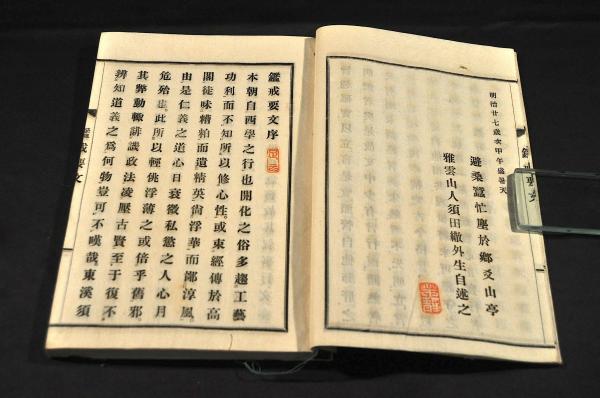 明治廿七歳次甲午盛暑天
避桑蠶忙塵於鄉爻山亭
雅雲山人須田徹外生自述之
鑑戒要文序
本朝自西學之行也開化之俗多趨工藝
功利而不知所以修心性或束經傳於高
閣徒味糟粕而遺精英尚浮華而鄙淳風
由是仁義之道心日衰微私慾之人心月
危殆也此所以輕佻浮薄之或倍乎舊邪
其弊動輙誹譏政法凌壓古賢至于復不
辨知道義之爲何物豈可不嘆哉東溪須
鑑戒要文